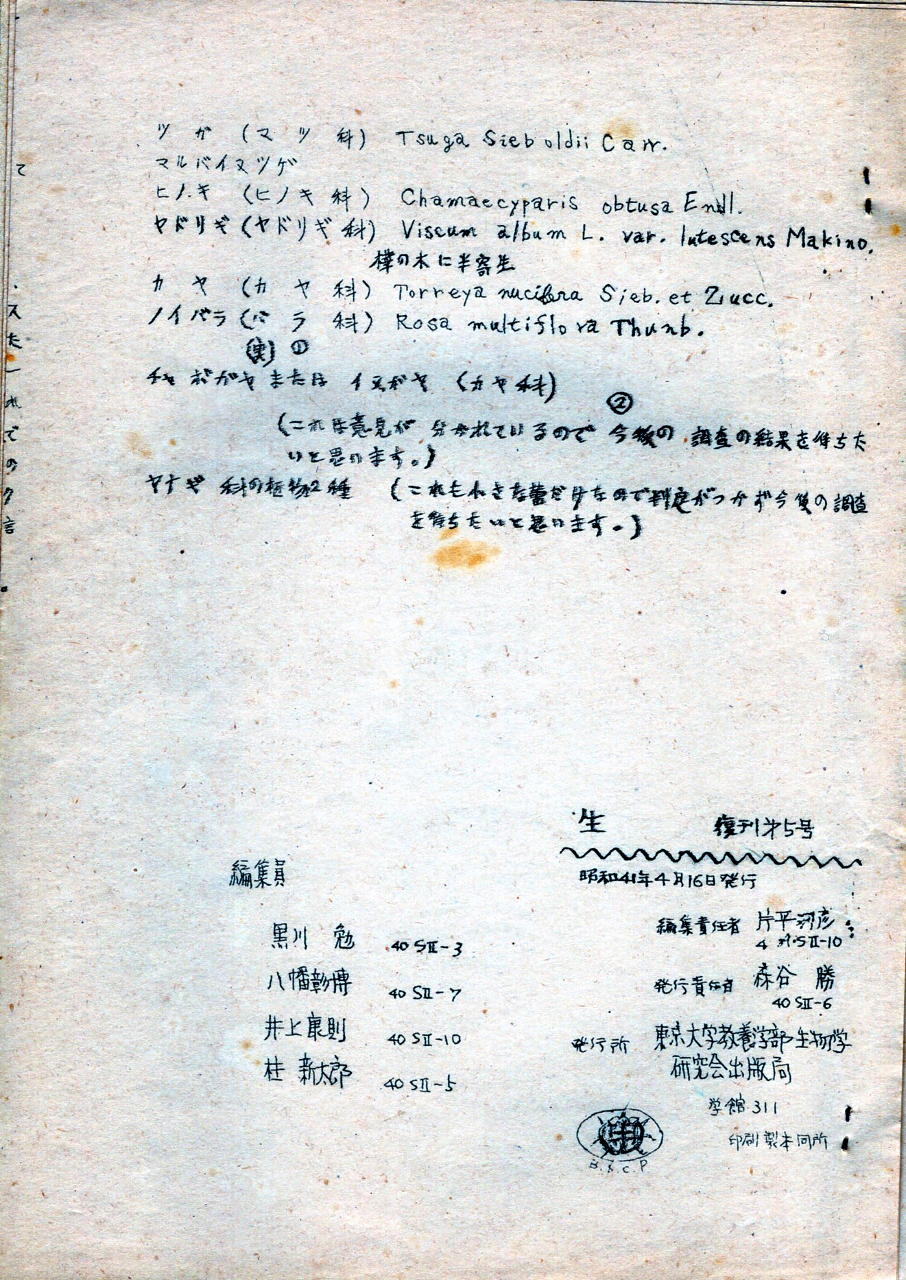 ツガ (マツ科) Tsuga Sieboldii Carr.
マルバイヌツゲ
ヒノキ (ヒノキ科) Chamaecyparis obtusa Endl.
ヤドリギ (ヤドリギ科) Viscum album L. var. lutescens Makino.
樺の木に半寄生
カヤ (カヤ科) Torreya nucifera Sieb. et Zucc.
ノイバラ (バラ科) Rosa multiflora Thunb.
(実) ①
チャボガヤ または イヌガヤ (カヤ科)
②
(これは意見が 分かれているので 今後の 調査の結果を待ちた
いと思います。)
ヤナギ科の植物2種 (これも小さな蕾だけなので判定がつかず今後の調査
を待ちたいと思います。)
生 復刊第5号
昭和41年4月16日発行
編集員
黒川 勉 40SII-3
八幡彰博 40SII-7
井上康則 40SII-10
桂 新太郎 40SII-5
編集責任者 片平
SII-10
発行責任者 森谷 勝
40SII-6
発行所 東京大学教養学部生物学
研究会出版局
学館311
印刷製本同所
B.S.C.P